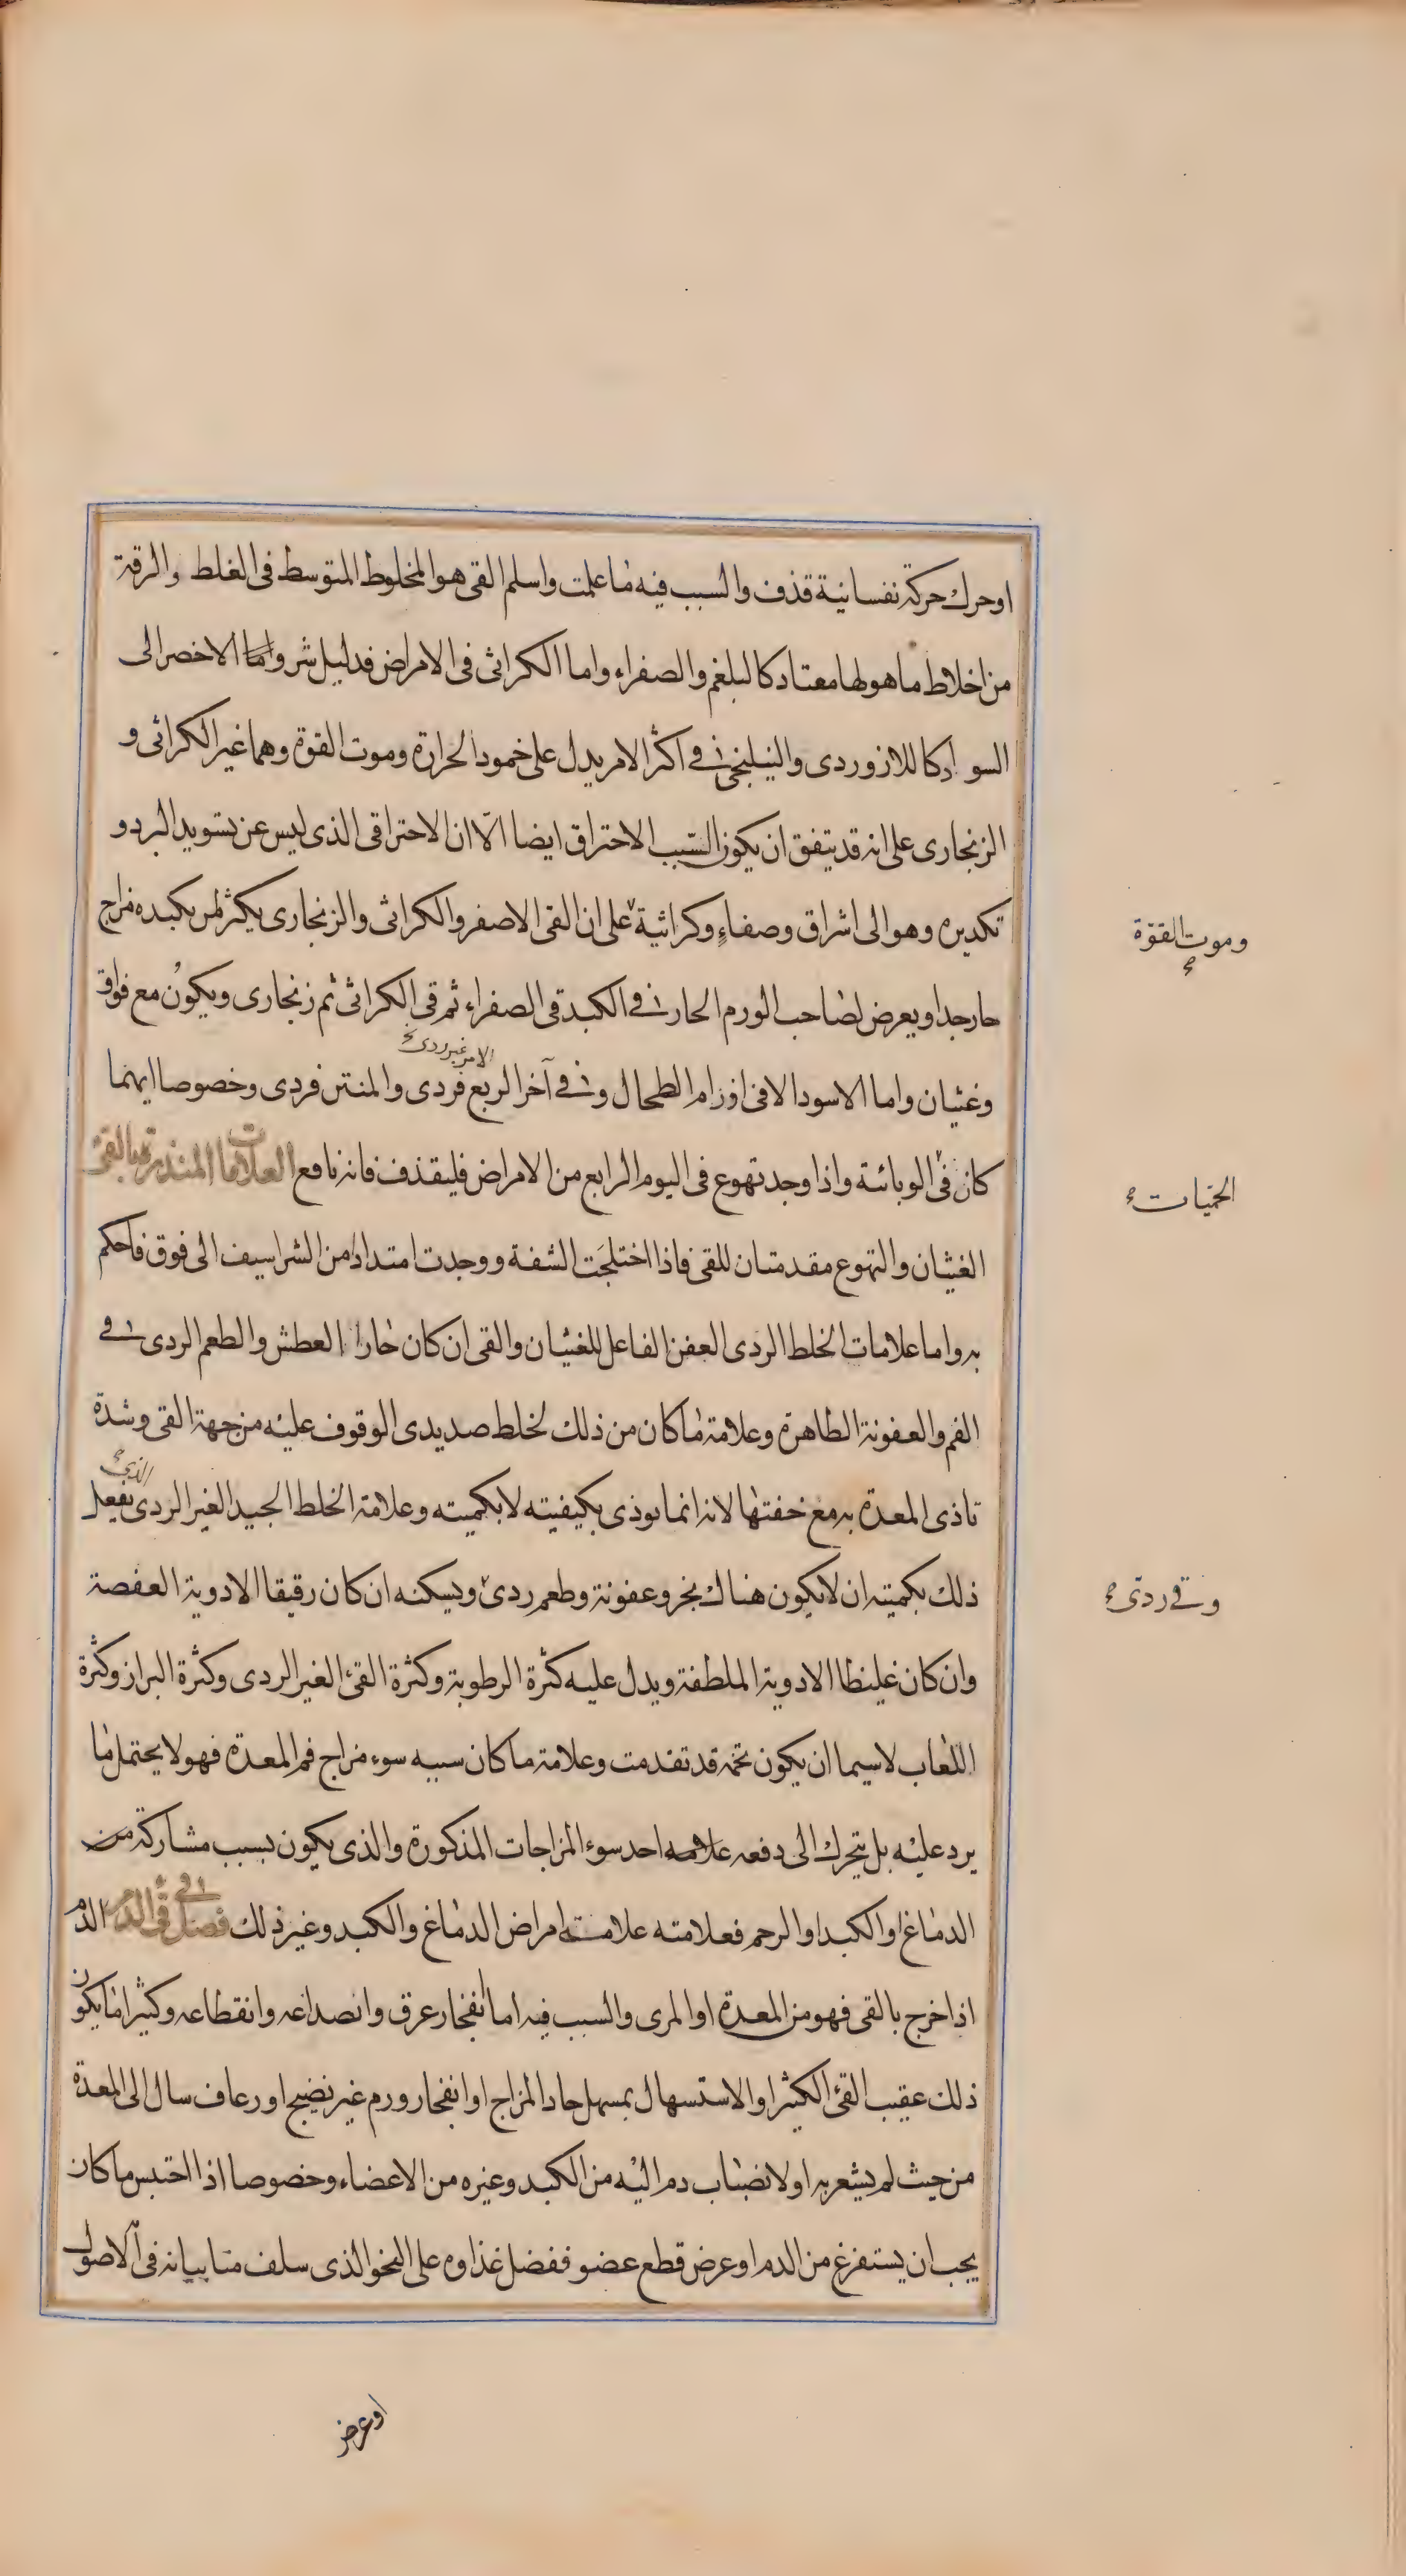 اوحرك حركة نفسانية قذف والسبب فيه ما علمت واسلم القى هو المخلوط المتوسط فى الغلط والرقة
من اخلاط ما هو لها معتاد كالبلغم والصفراء واما الكراثى فى الامراض فدليل شر واما الاخضر الى
السواد كاللازوردى والنيلنجى فى اكثر الامر يدل على خمود الحرارة وموت القوة وهما غير الكراثى و
الزنجارى على انه قد يتفق ان يكون السبب الاحتراق ايضا الّا ان الاحتراقى الذى ليس عن تسويد البرد و
تكديره وهو الى اشراق وصفاءٍ وكراثية على ان القى الاصفر والكراثى والزنجارى يكثر لمن بكبده مزاج
وموت القوّة
حار جدا ويعرض لصاحب الورم الحار فى الكبد قى الصفراء ثم قى الكراثى ثم زنجارى ويكون مع فواق
الامر غير ردى
وغثيان واما الاسود الا فى اورام الطحال وفى آخر الربع فردى والمنتن فردى وخصوصا ايهما
كان فى الوبائية واذا وجد تهوع فى اليوم الرابع من الامراض فليقذف فانه نافع العلامات المنذرة بالقئ
الحمّيات
الغثيان والتهوع مقدمتان للقى فاذا اختلجَت الشفة ووجدت امتدادا من الشراسيف الى فوق فاحكم
به واما علامات الخلط الردى العفن الفاعل للغثيان والقى ان كان حارا العطش والطعم الردى فى
الفم والعفونة الظاهرة وعلامة ما كان من ذلك لخلط صديدى الوقوف عليه من جهة القى وشدة
الذى
تاذى المعدة به مع خفتها لانه انما يوذى بكيفيته لا بكميته وعلامة الخلط الجيد الغير الردى يفعل
ذلك بكميته ان لا يكون هناك بخر وعفونة وطعم ردئ ويسكنه ان كان رقيقا الادوية العفصة
وقى ردئ
وان كان غليظا الادوية الملطفة ويدل عليه كثرة الرطوبة وكثرة القئ الغير الردى وكثرة البراز وكثرة
اللعاب لا سيما ان يكون تخمه قد تقدمت وعلامة ما كان سببه سوء مزاج فم المعدة فهو لا يحتمل ما
يرد عليه بل يتحرك الى دفعه علامه احد سوء المزاجات المذكورة والذى يكون بسبب مشاركة من
الدماغ او الكبد او الرحم فعلامته علامته امراض الدماغ والكبد وغير ذلك فصل فى قى الدم الدم
اذا خرج بالقى فهو من المعدة او المرى والسبب فيه اما انفجار عرق وانصداعه وانقطاعه وكثيرا ما يكون
ذلك عقيب القئ الكثير او الاستسهال بمسهل حاد المزاج او انفجار ورم غير نضيج او رعاف سال الى المعدة
من حيث لم يشعر به او لانصباب دم اليه من الكبد وغيره من الاعضاء وخصوصا اذا احتبس ما كان
يجب ان يستفرغ من الدم او عرض قطع عضو ففضل غذاوه على النحو الذى سلف منا بيانه فى الاصول
اوعرض